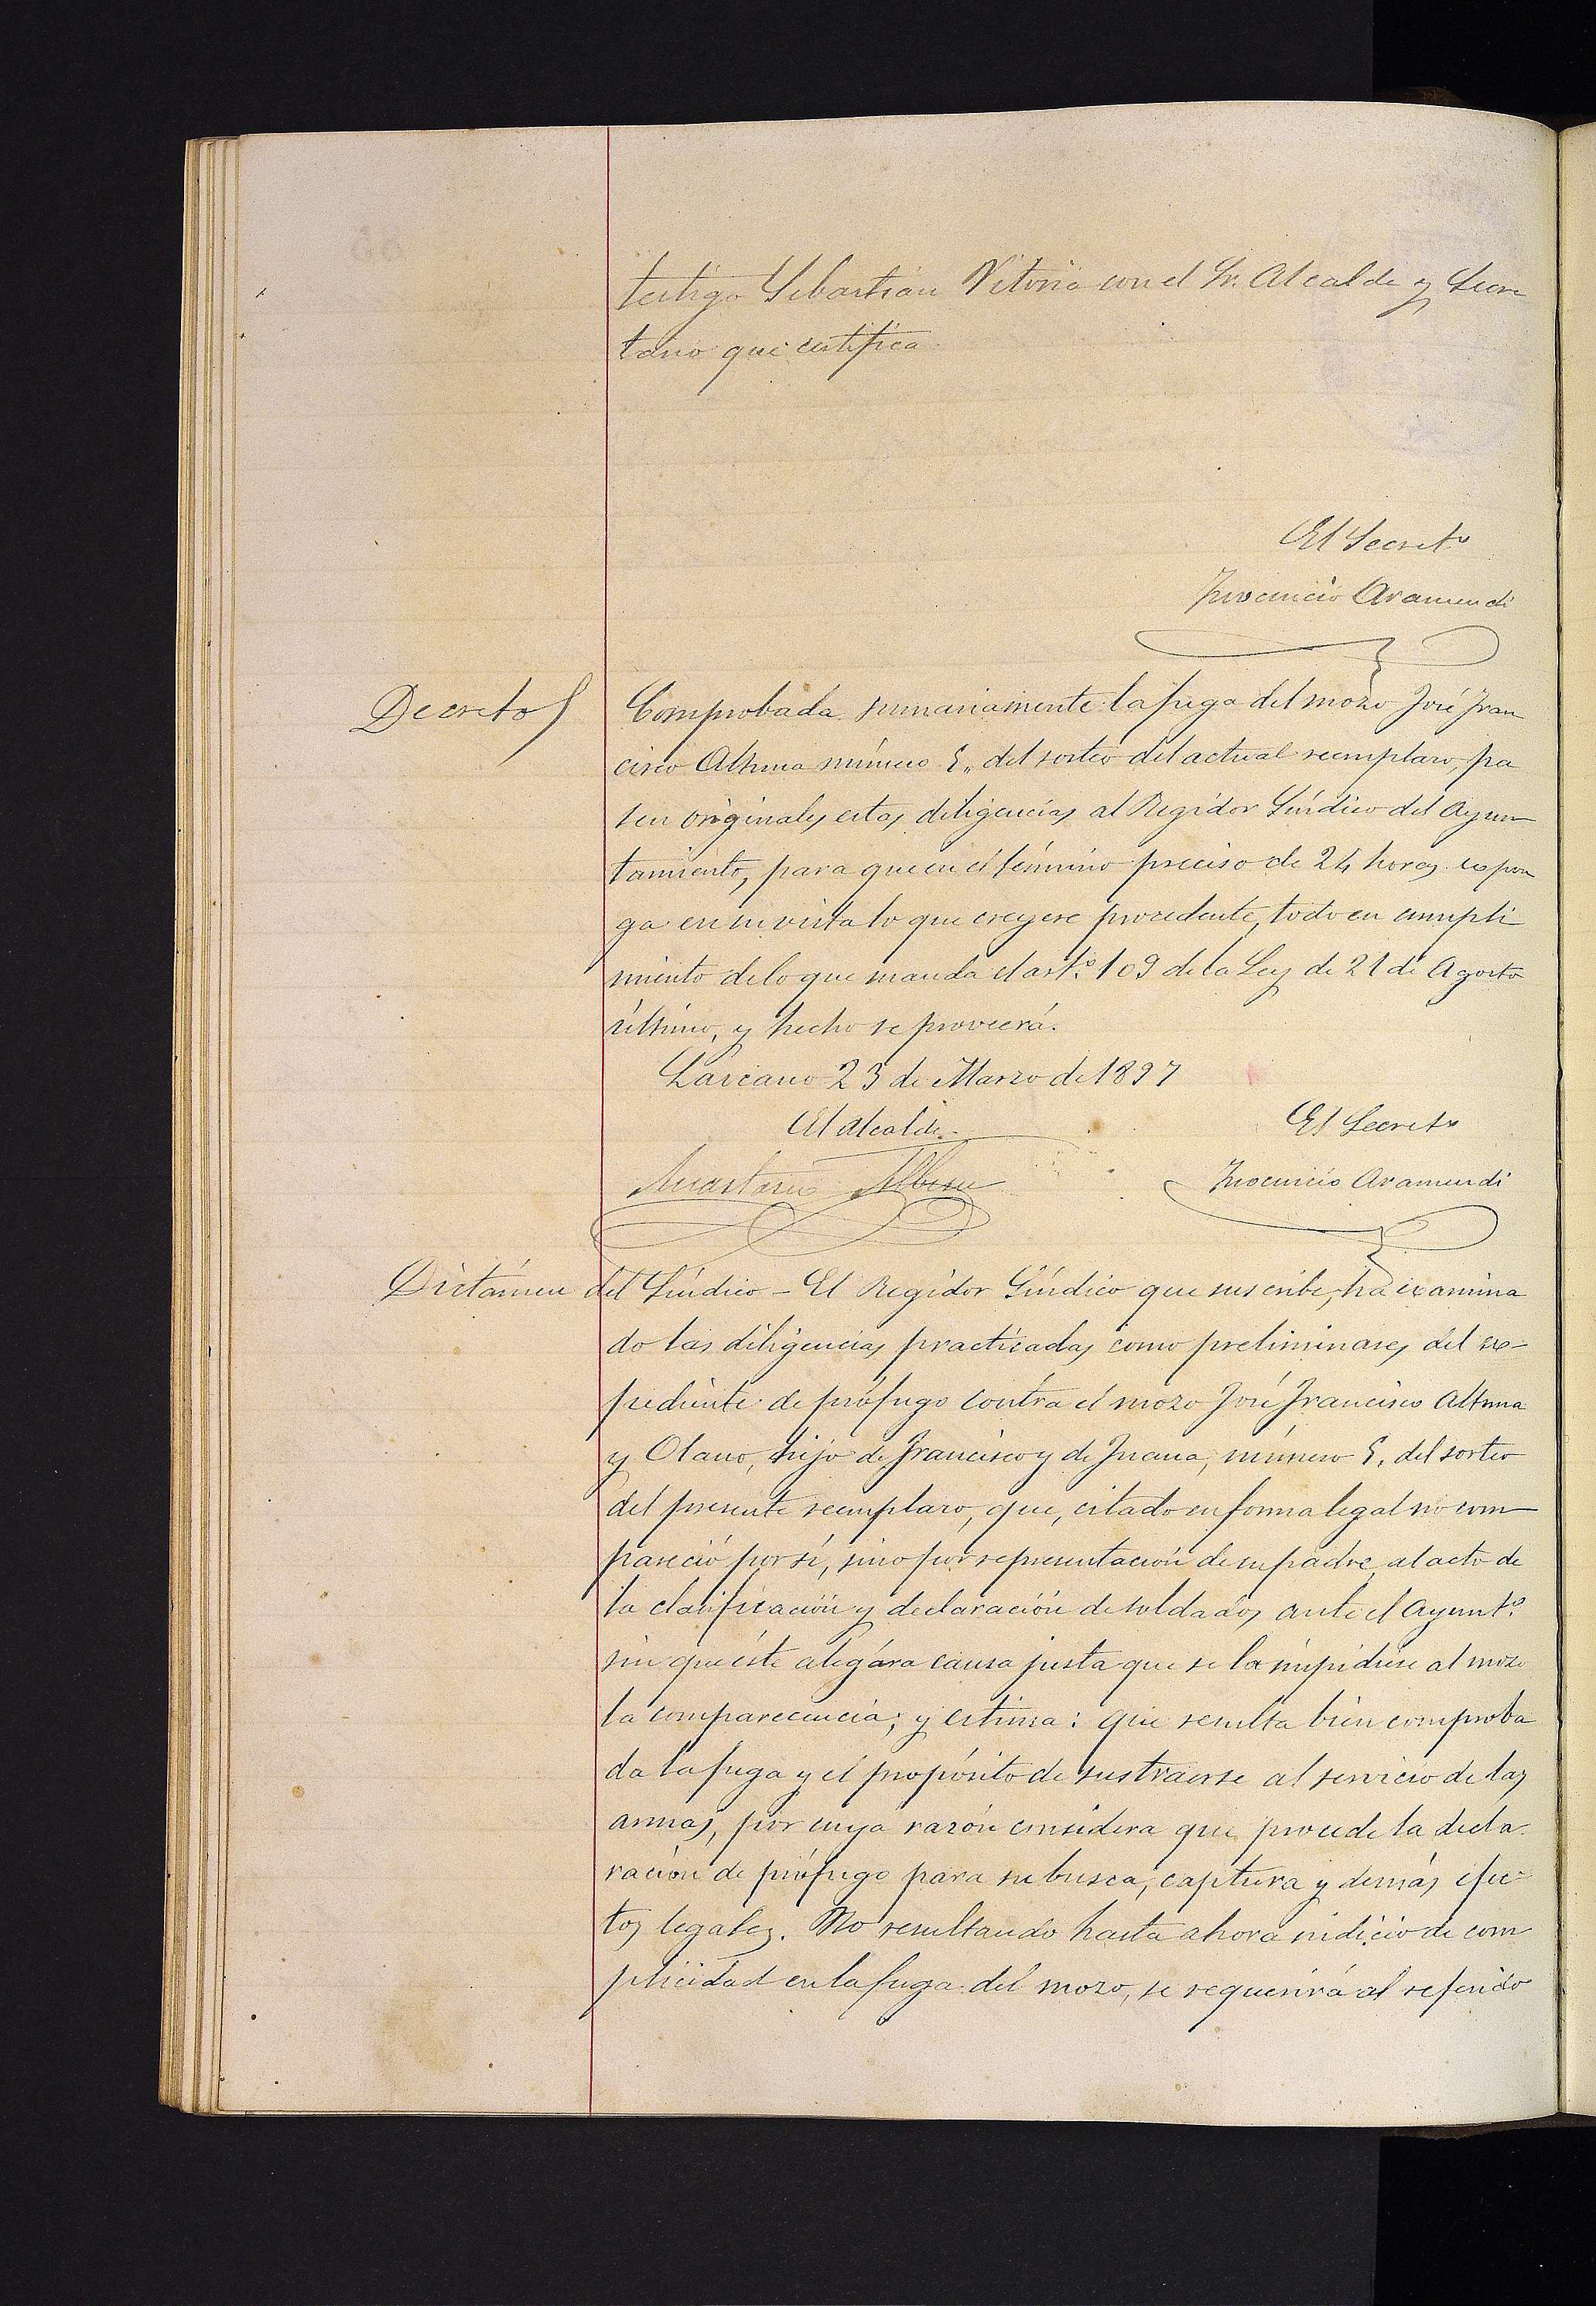 testigo Sebastián Vitoria con el Sr. Alcalde y Secre
tario que certifica
El Secret.o
Inocencio Aramendi
Decreto
Comprobada sumariamente la fuga del mozo José Fran
cisco Altuna número 5,, del sorteo del actual reemplazo, pa
sen originales estas diligencias al Regidor Síndico del Ayun
tamiento, para que en el término preciso de 24 horas expon
ga en su vista lo que creyere procedente, todo en cumpli
miento de lo que manda el art.º 109 de la Ley de 21 de Agosto
último, y hecho se proveerá.
Lazcano 23 de Marzo de 1897
El Alcalde. El Secreto
Anastasio Albisu Inocencio Aramendi
Dictámen del Síndico - El Regidor Síndico que suscribe, ha examina
do las diligencias practicadas como preliminares del ex-
pediente de prófugo contra el mozo José Francisco Altuna
y Olano, hijo de Francisco y de Juana, número 5, del sorteo
del presente reemplazo, que, citado en forma legal no com
pareció por sí, sino por representación de su padre, al acto de
la clasificación y declaración de soldados, ante el Ayunt.º
sin que éste alegára causa justa que se la impidiese al mozo
la comparecencia; y estima: que resulta bien comproba
da la fuga y el propósito de sustraerse al servicio de las
armas, por cuya razón considera que procede la decla-
ración de prófugo para su busca, captura y demás efec-
tos legales. No resultando hasta ahora indicio de com
plicidad en la fuga del mozo, se requerirá al referido